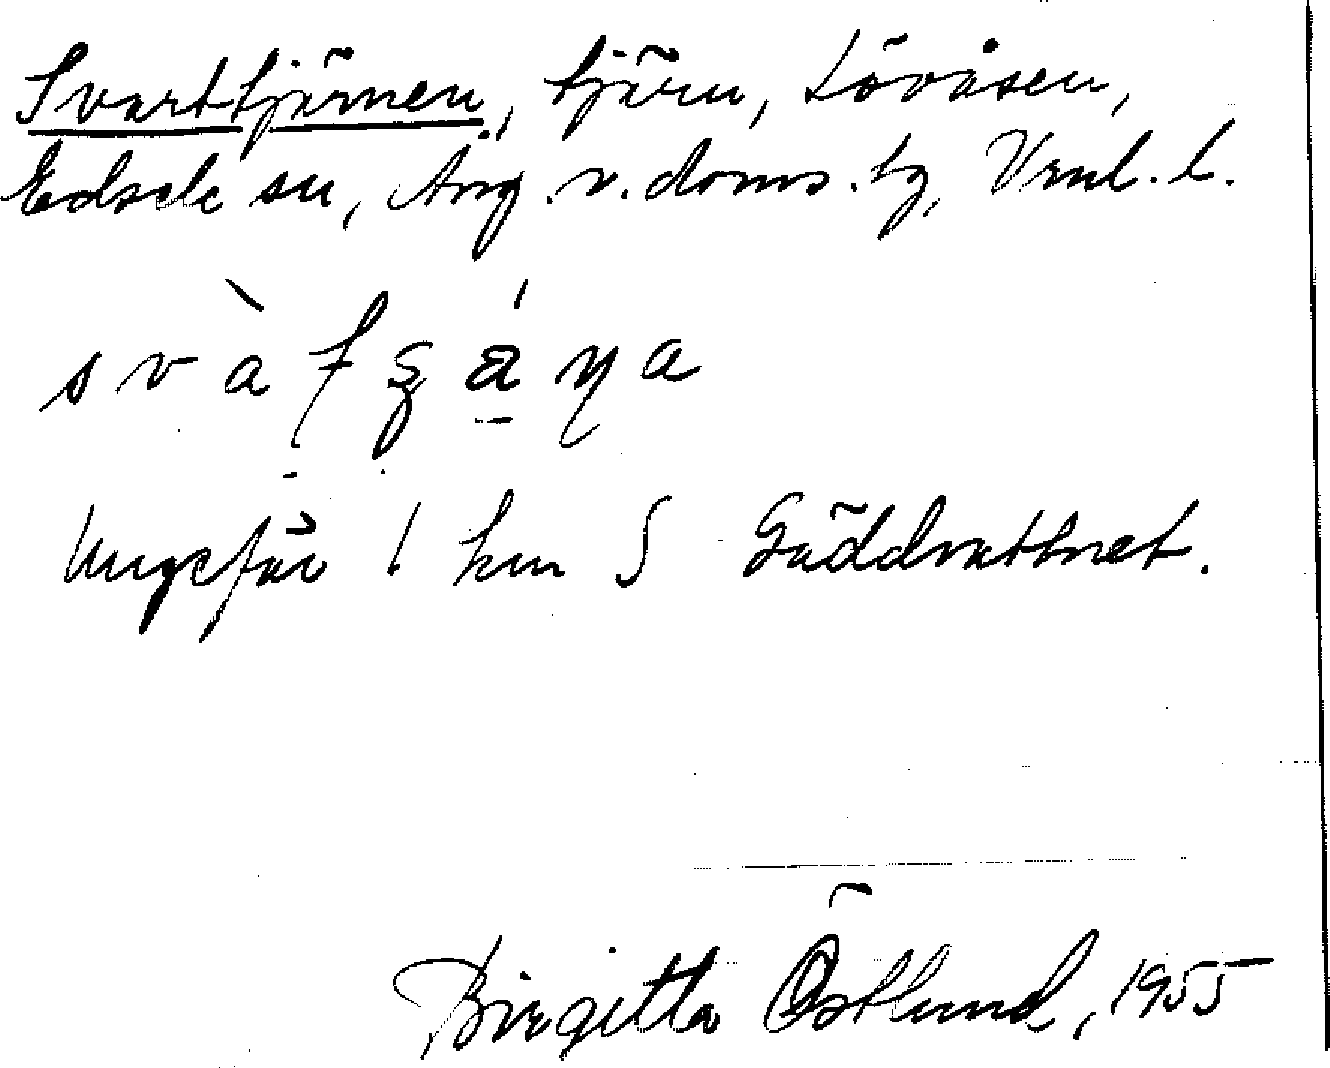 Svarttjärnen, tjärn, Lövåsen,
Edsele sn, Ång. v. doms. tg, Vrnl. l.
Ungefär 1 km S Gäddvattnet.
Birgitta Östlund, 1955